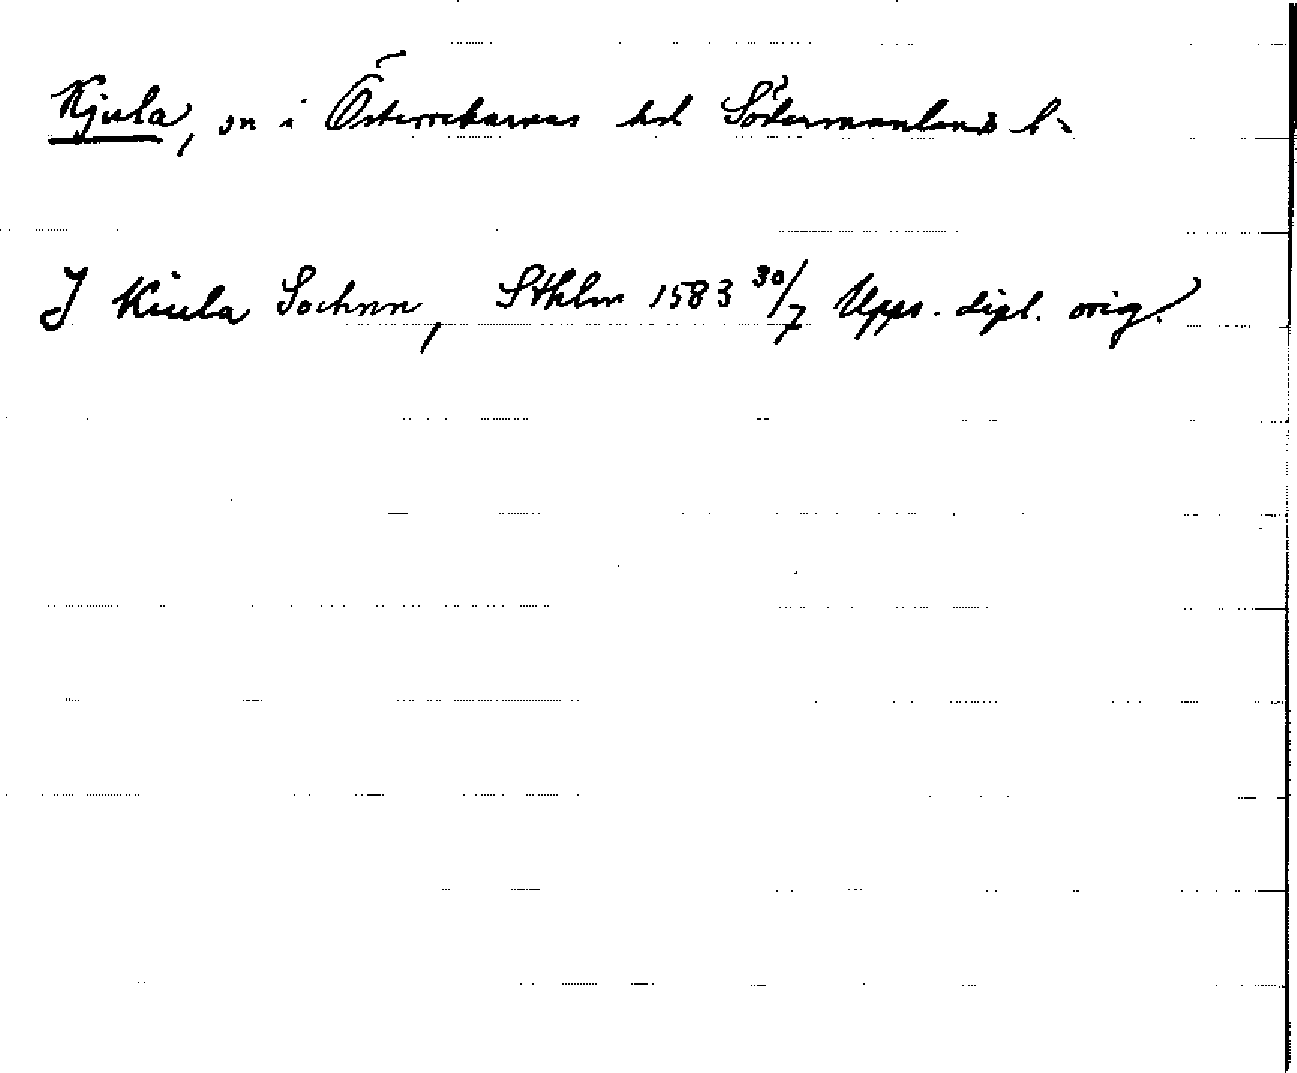 Kjula, sn i Österrekarnes hd Södermanlands l.
J Kiula Sochnn, Sthlm 1583 30/7 Upps. dipl. orig.